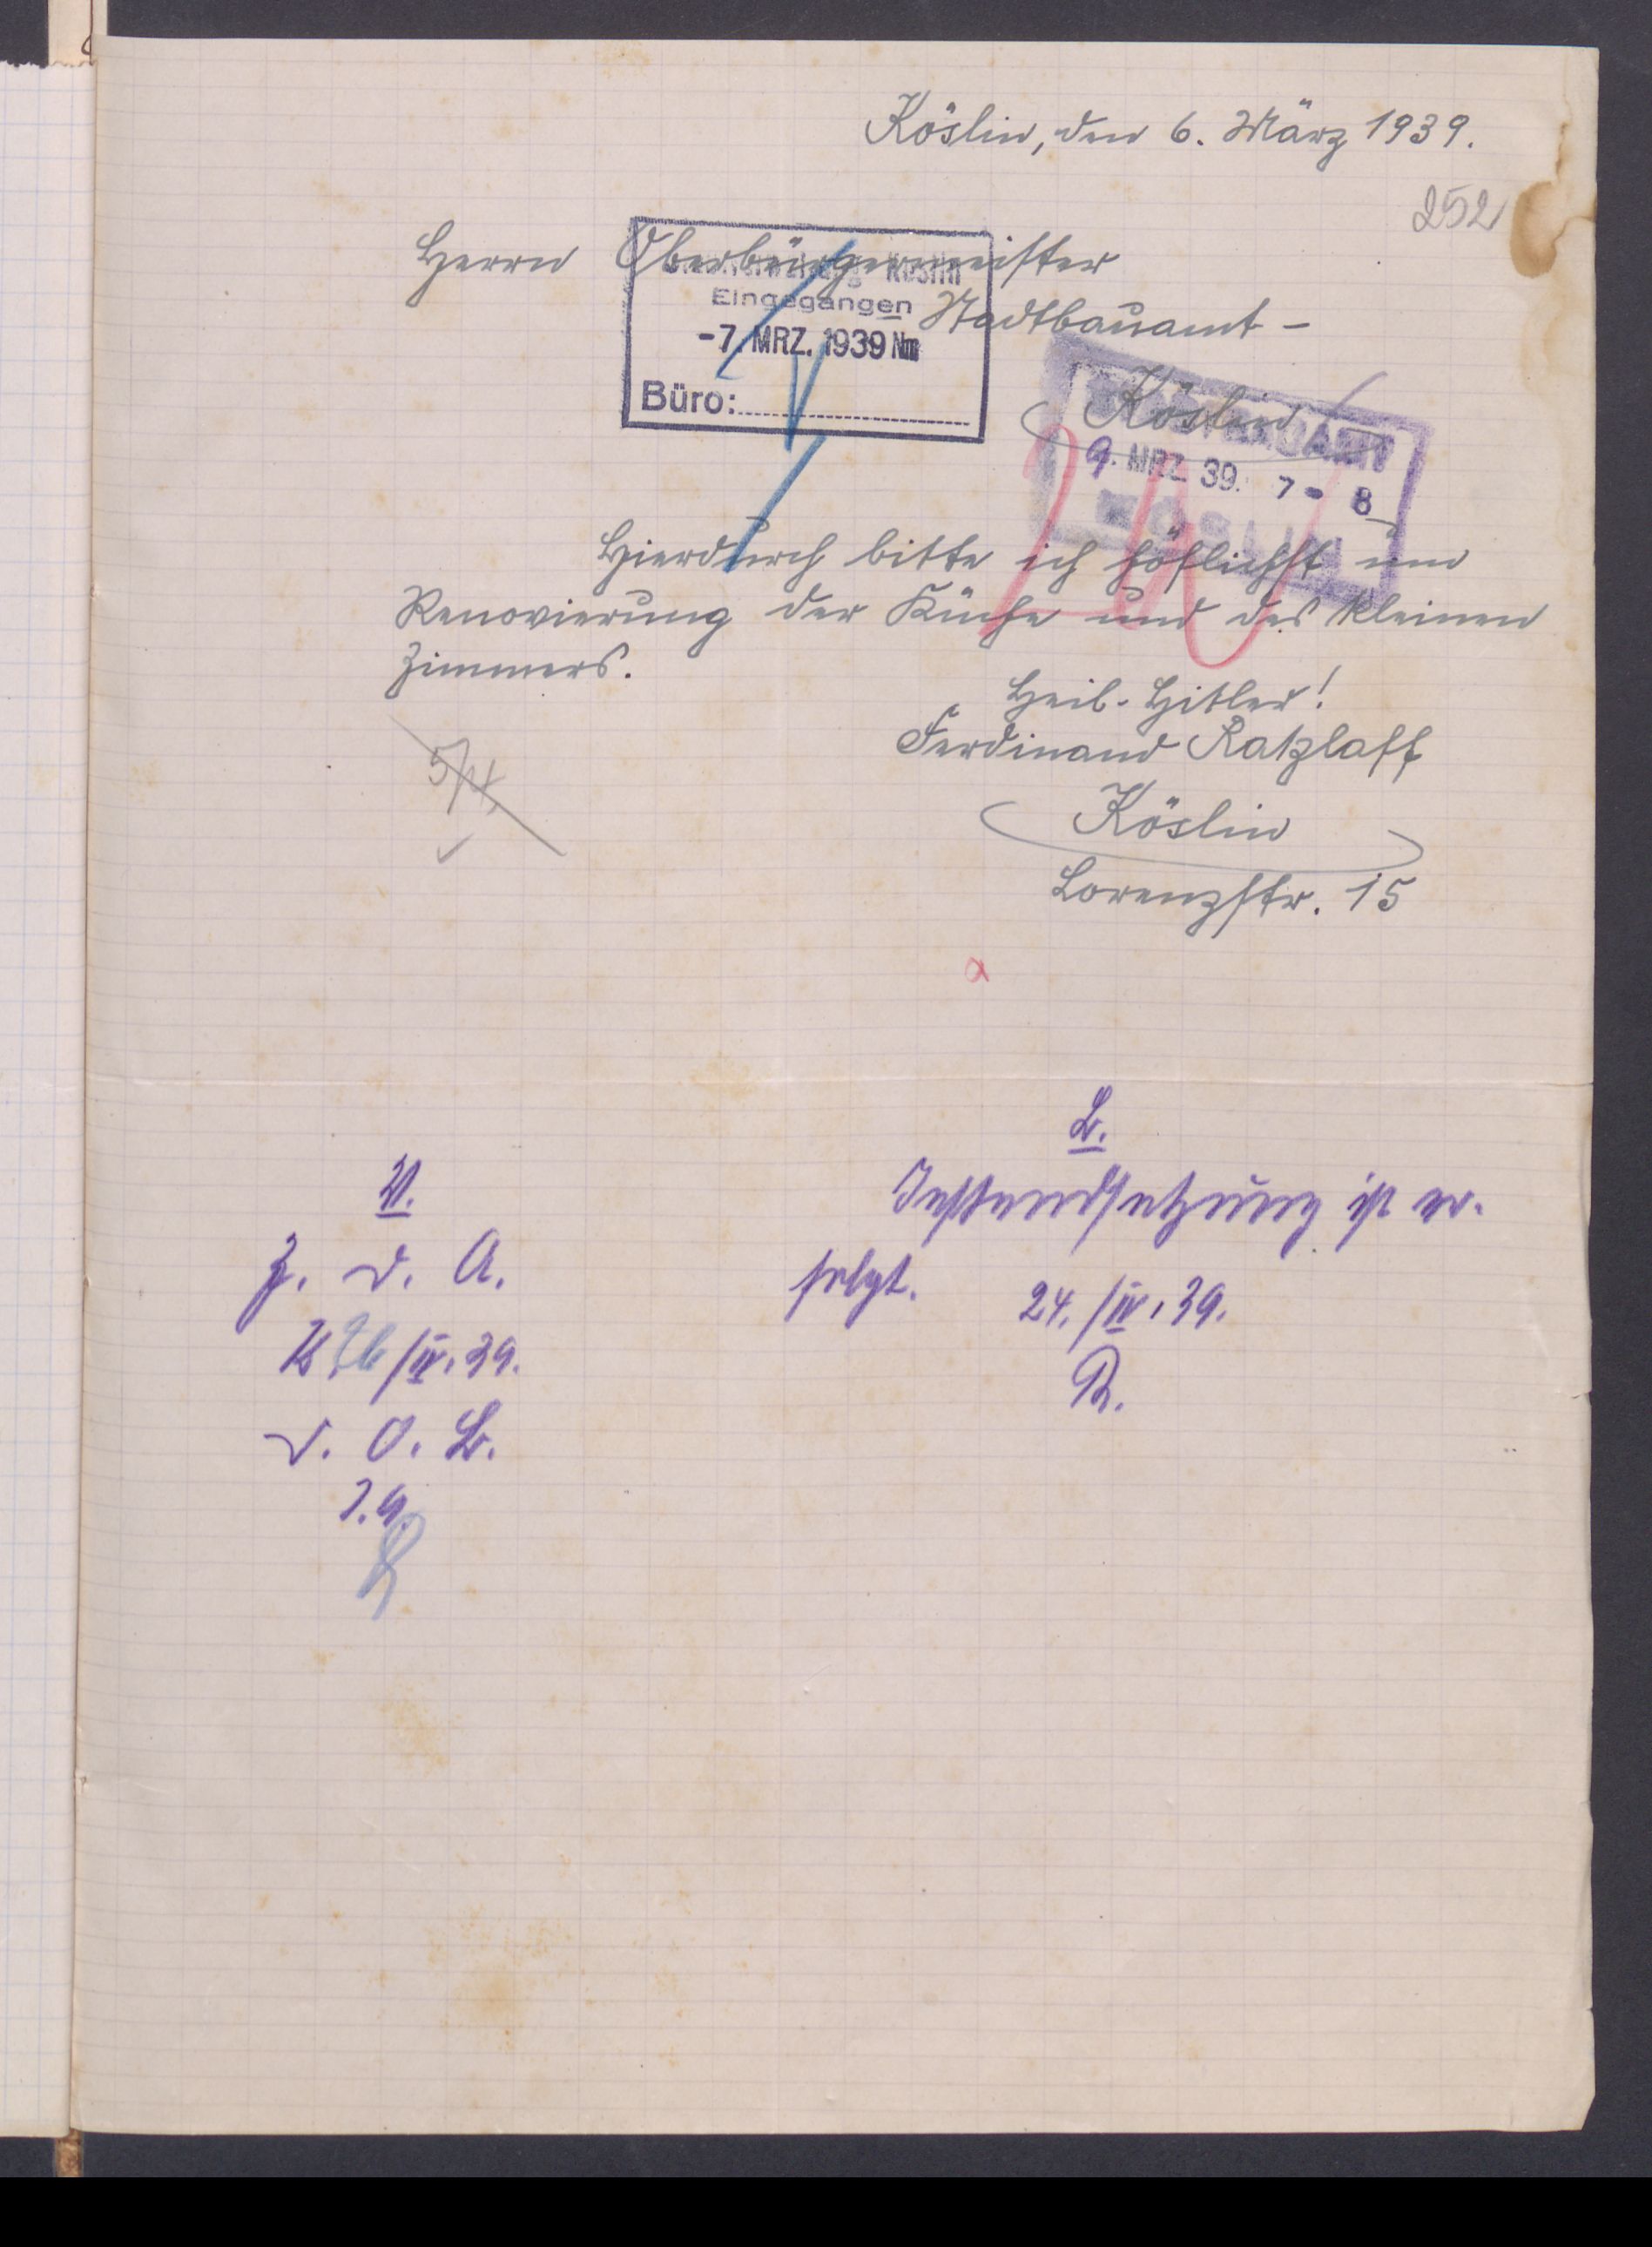 Köslin, den 6. März 1939.
252
Herrn Oberbürgermeister
Stadtbauamt -
Köslin
Köslin
Eingegangen
-7. MRZ. 1939 Nm
Büro:
STADTBAUAMT
9. MRZ. 39. 7-8
KÖSLIN
Hierdurch bitte ich höflichst um
Renovierung der Küche und des kleinen
Zimmers.
Heil-Hitler!
Ferdinand Ratzlaff
Köslin
Lorenzstr. 15
B.
Instandsetzung ist er-
folgt. 24./IV.39.
R.
V.
Z. d. A.
K 26/IV.39.
d. O. B.
I.A.